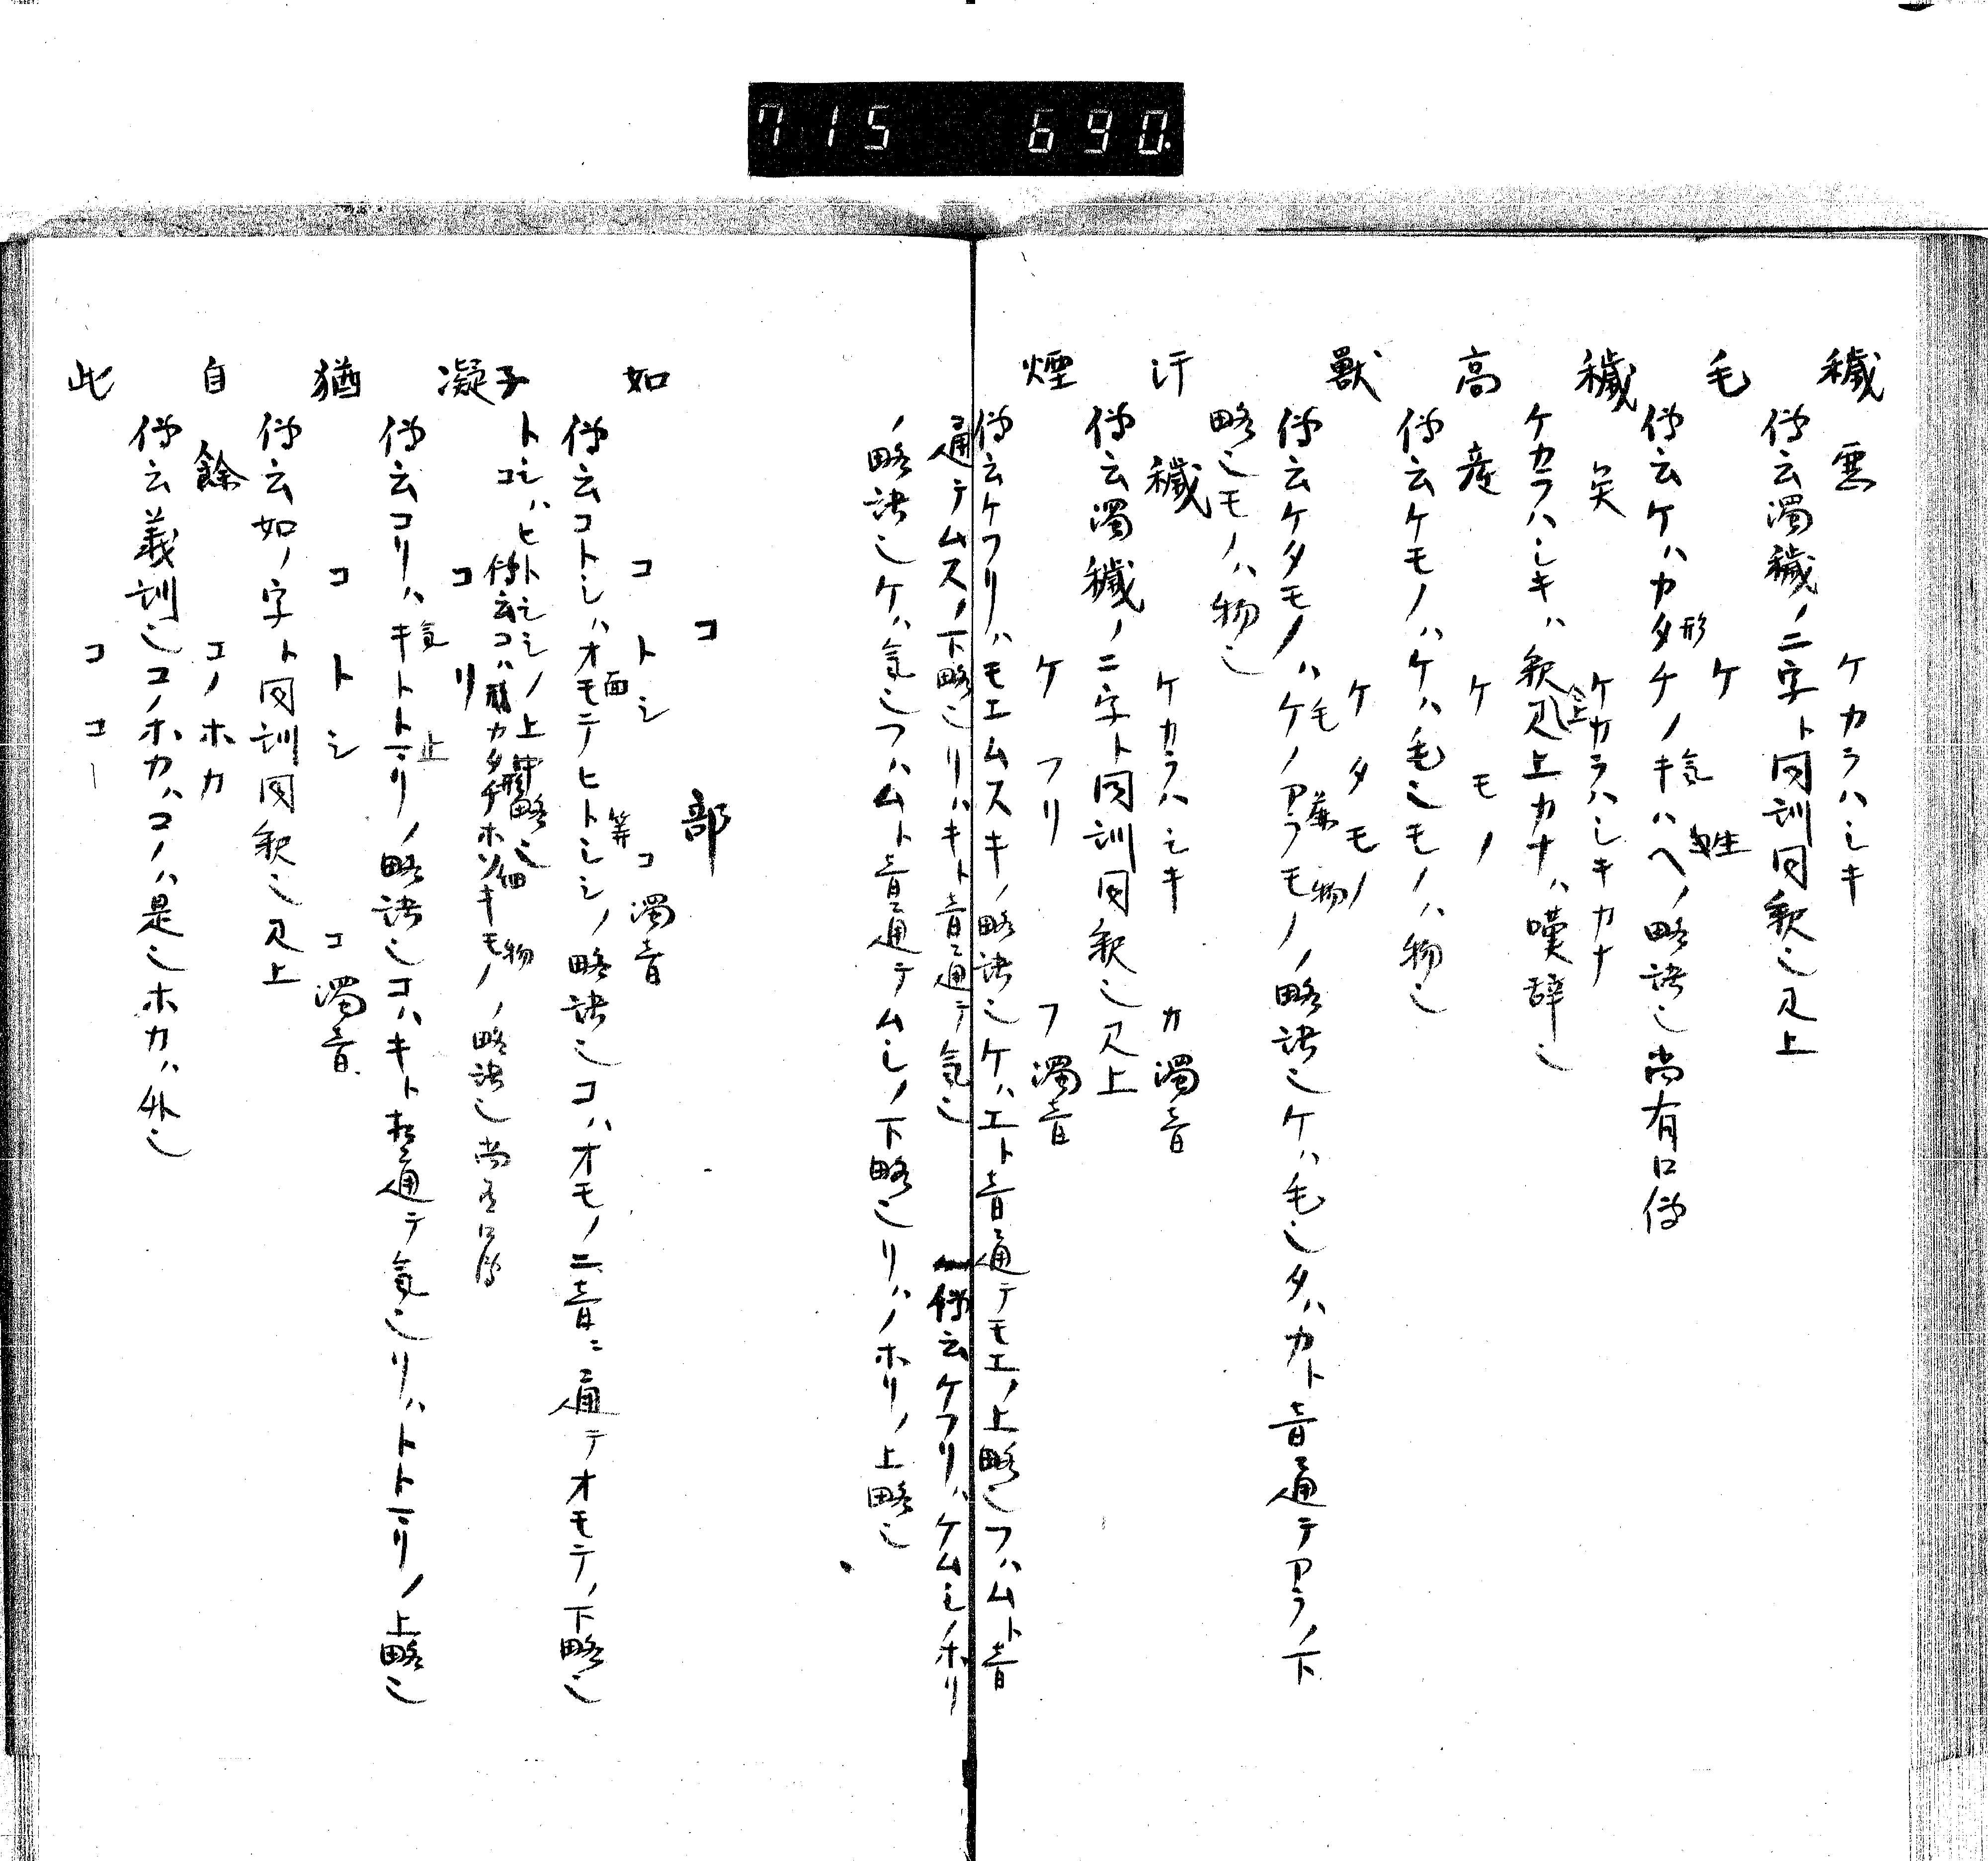 715 690.
穢悪 ケカラハシキ
伝云濁穢ノ二字ト同訓同釈也見上
毛 ケ 姓
伝云ケハカタチノキハヘノ略語也尚有口伝
形 気
穢矣 ケカラハシキカナ
ケカラハシキハ釈見上カナハ嘆辞也
高産 ケモノ
伝云ケモノハケハ毛也モノハ物也
獣 ケタモノ
伝云ケタモノハケノアラモノノ略語也ケハ毛也タハカト音通テアラノ下
毛 物
略也モノハ物也
汗穢 ケカラハシキ カ濁音
伝云濁穢ノ二字ト同訓同釈也見上
煙 ケフリ フ濁音
伝云ケフリハモエムスキノ略語也ケハエト音通テモエノ上略也フハムト音
通テムスノ下略也リハキト音通テ気也 伝云ケフリハケムシノホリ
ノ略語也ケハ気也フハムト音通テムシノ下略也リハノホリノ上略也
コ 部
如 コトシ コ濁音
伝云コトシハオモテヒトシシノ略語也コハオモノ二音ニ通テオモテノ下略也
面 等
トシハヒトシシノ上略也
子 コ
伝云コハカタチホソキモノノ略語也尚有口伝
細 物
凝 コリ
伝云コリハキトトマリノ略語也コハキト通テ気也リハトトマリノ上略也
気 止
猶 コトシ コ濁音
伝云如ノ字ト同訓同釈也見上
自餘 コノホカ
伝云義訓也コノホカハコノハ是也ホカハ外也
此 ココ